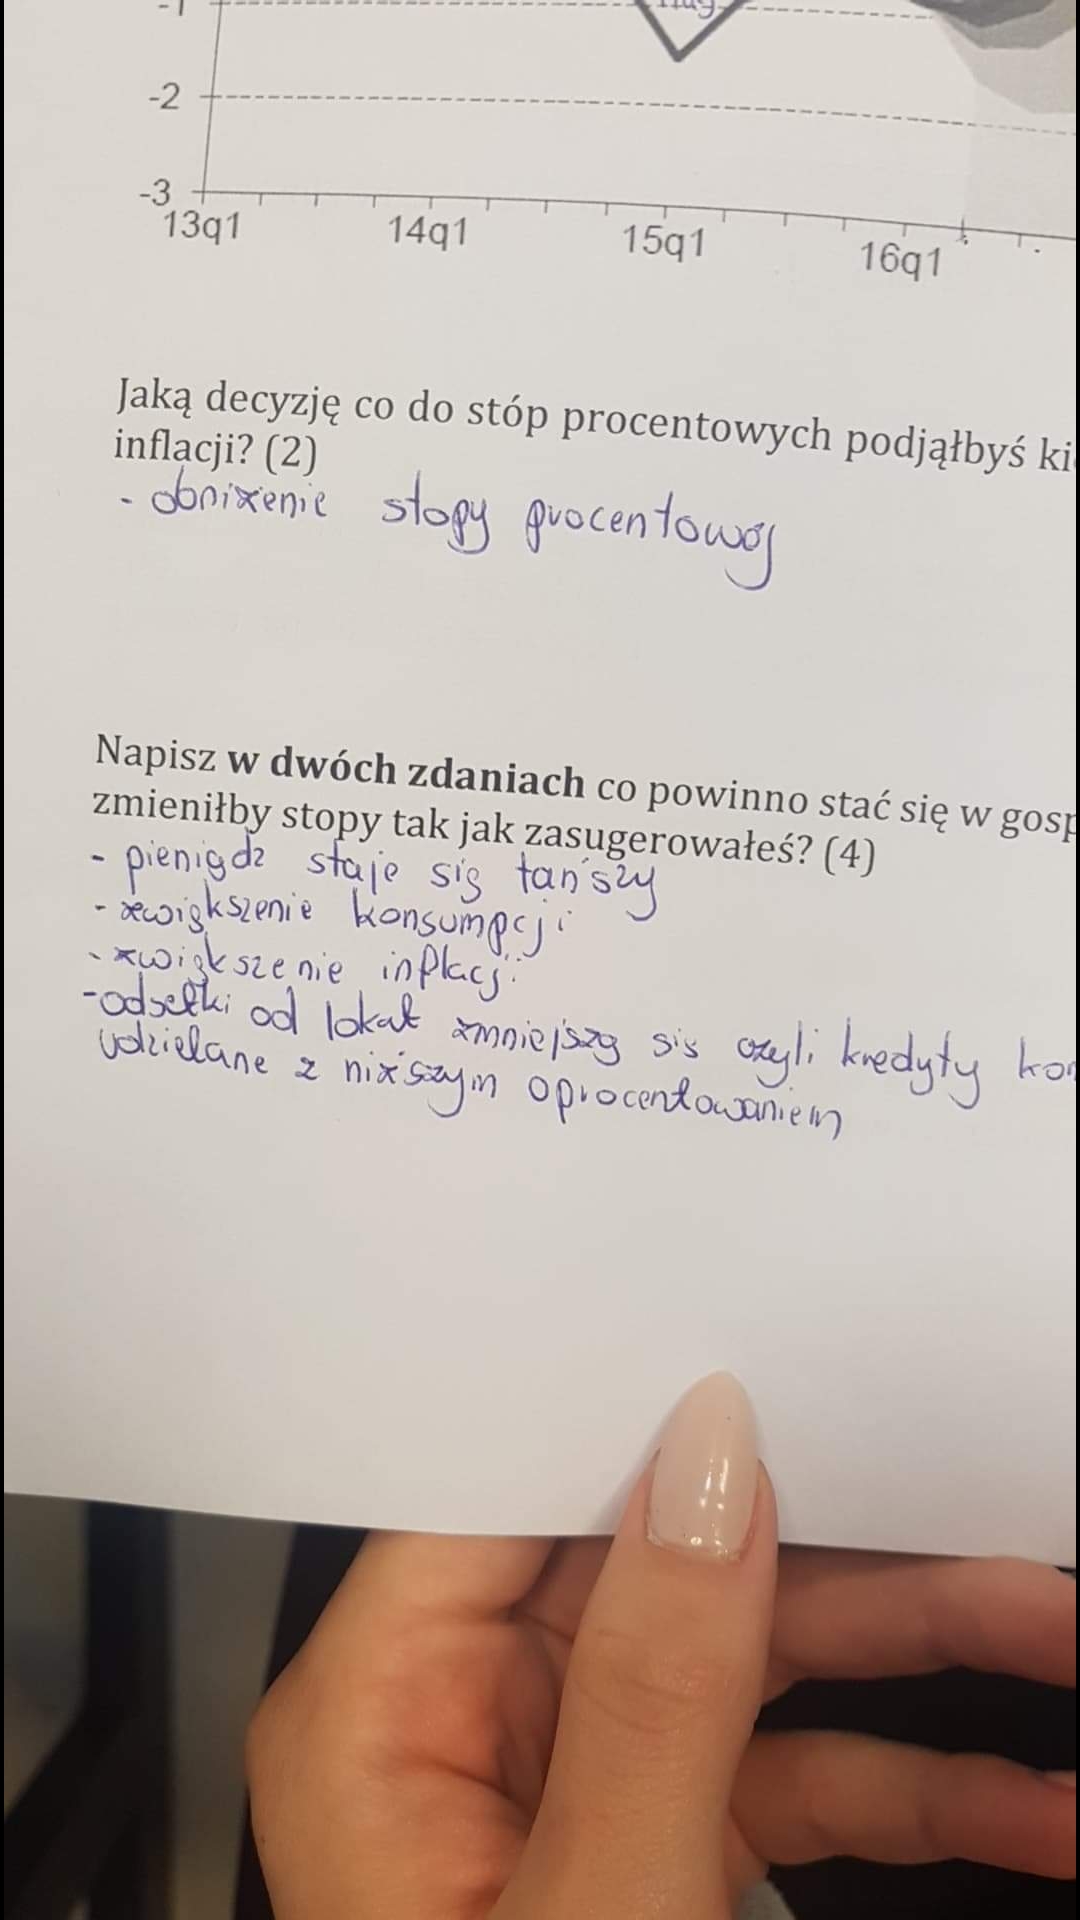 -1
-2
-3
13q1 14q1 15q1 16q1
Jaką decyzję co do stóp procentowych podjąłbyś
inflacji? (2)
- obniżenie stopy procentowej
Napisz w dwóch zdaniach co powinno stać się w
zmieniłby stopy tak jak zasugerowałeś? (4)
- pieniądz staje się tańszy
- zwiększenie konsumpcji
- zwiększenie inflacji
- odsetki od lokat zmniejszą się czyli kredyty
udzielane z niższym oprocentowaniem